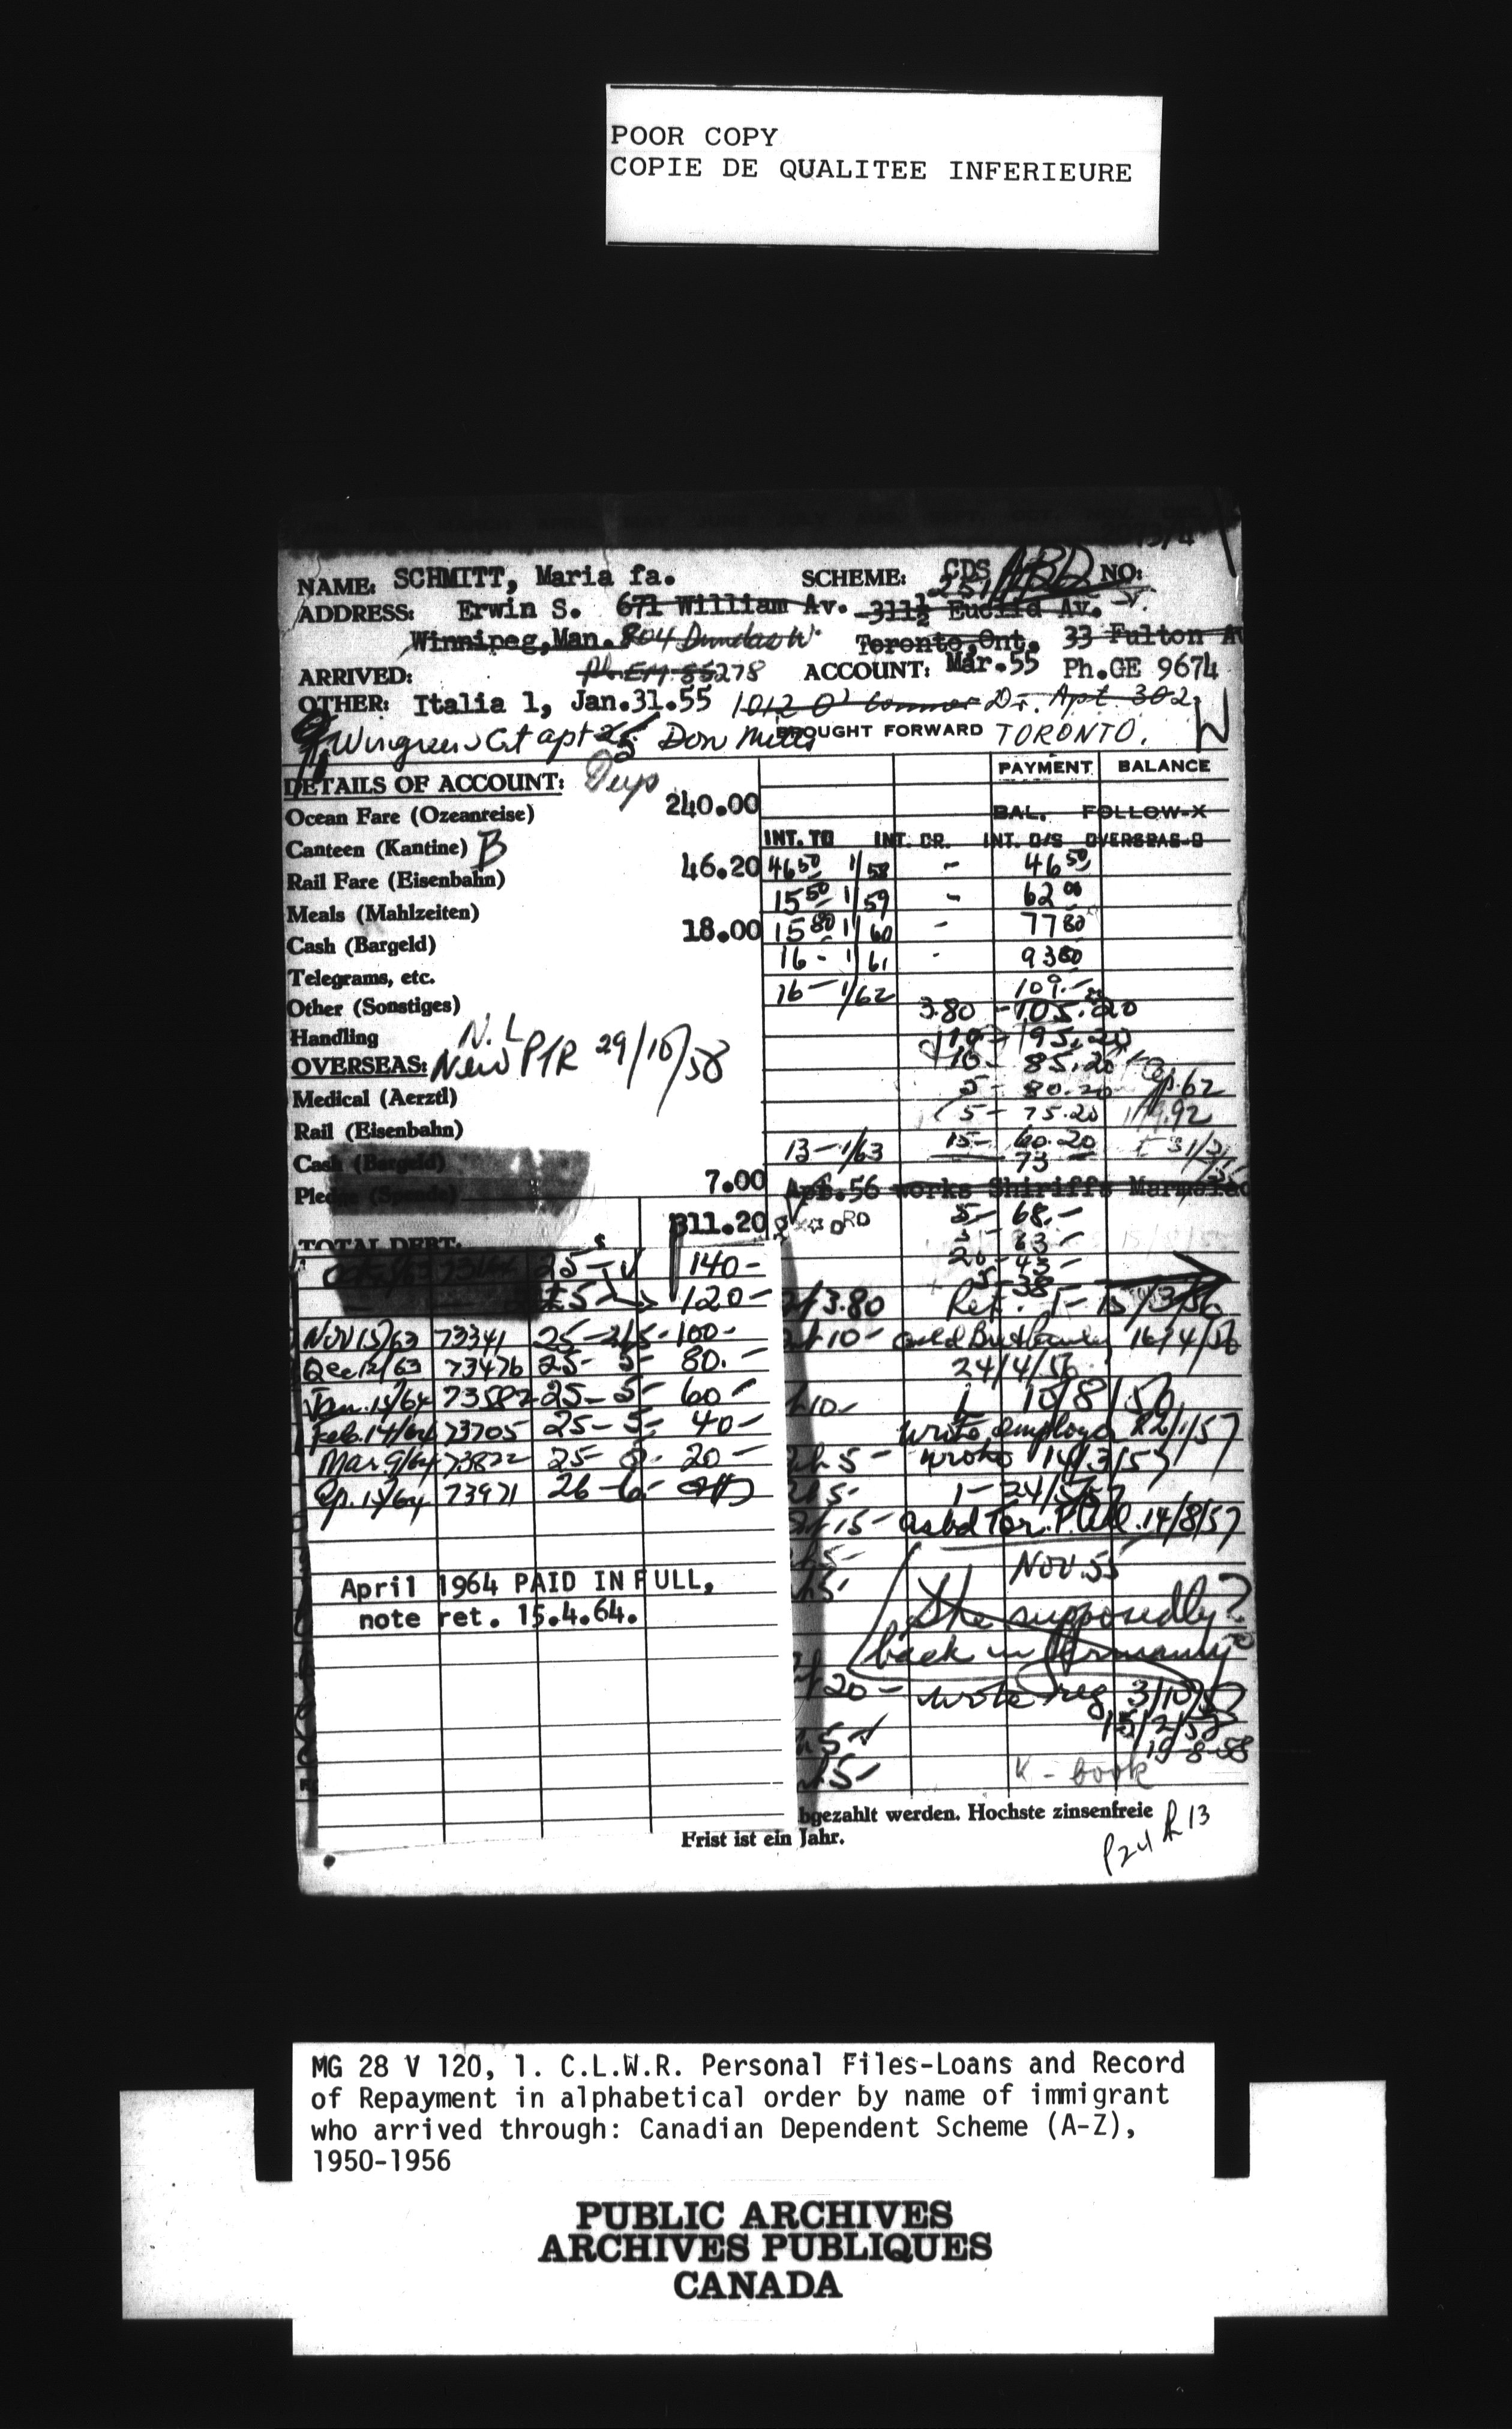 POOR COPY
COPIE DE QUALITEE INFERIEURE
NAME: SCHMITT, Maria fa. SCHEME: CDS NO:
251
ADDRESS: Erwin S. 671 William Av. 311½ Euclid Av.
Winnipeg, Man. 804 Dundas W. Toronto, Ont. 33 Fulton Av
ARRIVED: Ph. EM 85278 ACCOUNT: Mar.55 Ph.GE 9674
OTHER: Italia 1, Jan.31.55 1012 O'Connor Dr. Apt. 302
Wingreen Crt apt 25 Don Mills BROUGHT FORWARD TORONTO.
DETAILS OF ACCOUNT: PAYMENT BALANCE
Ocean Fare (Ozeanreise) 240.00 BAL. FOLLOW-X
Canteen (Kantine) B INT. TO INT. CR. INT. O/S OVERSEAS-O
Rail Fare (Eisenbahn) 46.20 46 50 1/58 - 46 50
Meals (Mahlzeiten) 15 50 1/59 - 62 00
Cash (Bargeld) 18.00 15 80 1/60 - 77 80
Telegrams, etc. 16 - 1/61 - 93 80
Other (Sonstiges) 16 - 1/62 109.-
3.80 - 105.20
Handling N.L. 10 - 195.20
OVERSEAS: New PTR 29/10/58 10 - 85.20
Medical (Aerztl) 5 - 80.20 Ap.62
Rail (Eisenbahn) 5 - 75.20
Cash (Bargeld) 13 - 1/63 15 - 60.20
73 -
Pledge (Spende) 7.00 Apr.56 works Shiriffs Marmalad
311.20 5 - 68.-
TOTAL DEBT: 5 - 63 -
25 - 140 - 20 - 43 -
25 - 5 - 120 - 5 - 38 -
3.80 Ref. 1 - 15/3/56
Nov 15/63 73341 25 - 5 - 100 - 10 - 16/4/56
Dec 12/63 73476 25 - 5 - 80.- 24/4/56
Jan. 14/64 73582 25 - 5 - 60 - 10 - 1 10/8/56
Feb. 14/64 73705 25 - 5 - 40 - write employer 22/1/57
Mar 9/64 73822 25 - 5 - 20 - 5 - wrote 14/3/57
Ap. 14/64 73971 26 - 6 - 5 - 1 - 24/5/57
15 - askd Tor. 14/8/57
5 - Nov. 55
April 1964 PAID IN FULL, 5 -
note ret. 15.4.64. She supposedly?
back in Germany
20 - wrote reg 3/10/57
15/2/58
5 - 19-8-58
5 - K - book
bgezahlt werden. Hochste zinsenfreie
Frist ist ein Jahr.
P24 R13
MG 28 V 120, 1. C.L.W.R. Personal Files-Loans and Record
of Repayment in alphabetical order by name of immigrant
who arrived through: Canadian Dependent Scheme (A-Z),
1950-1956
PUBLIC ARCHIVES
ARCHIVES PUBLIQUES
CANADA